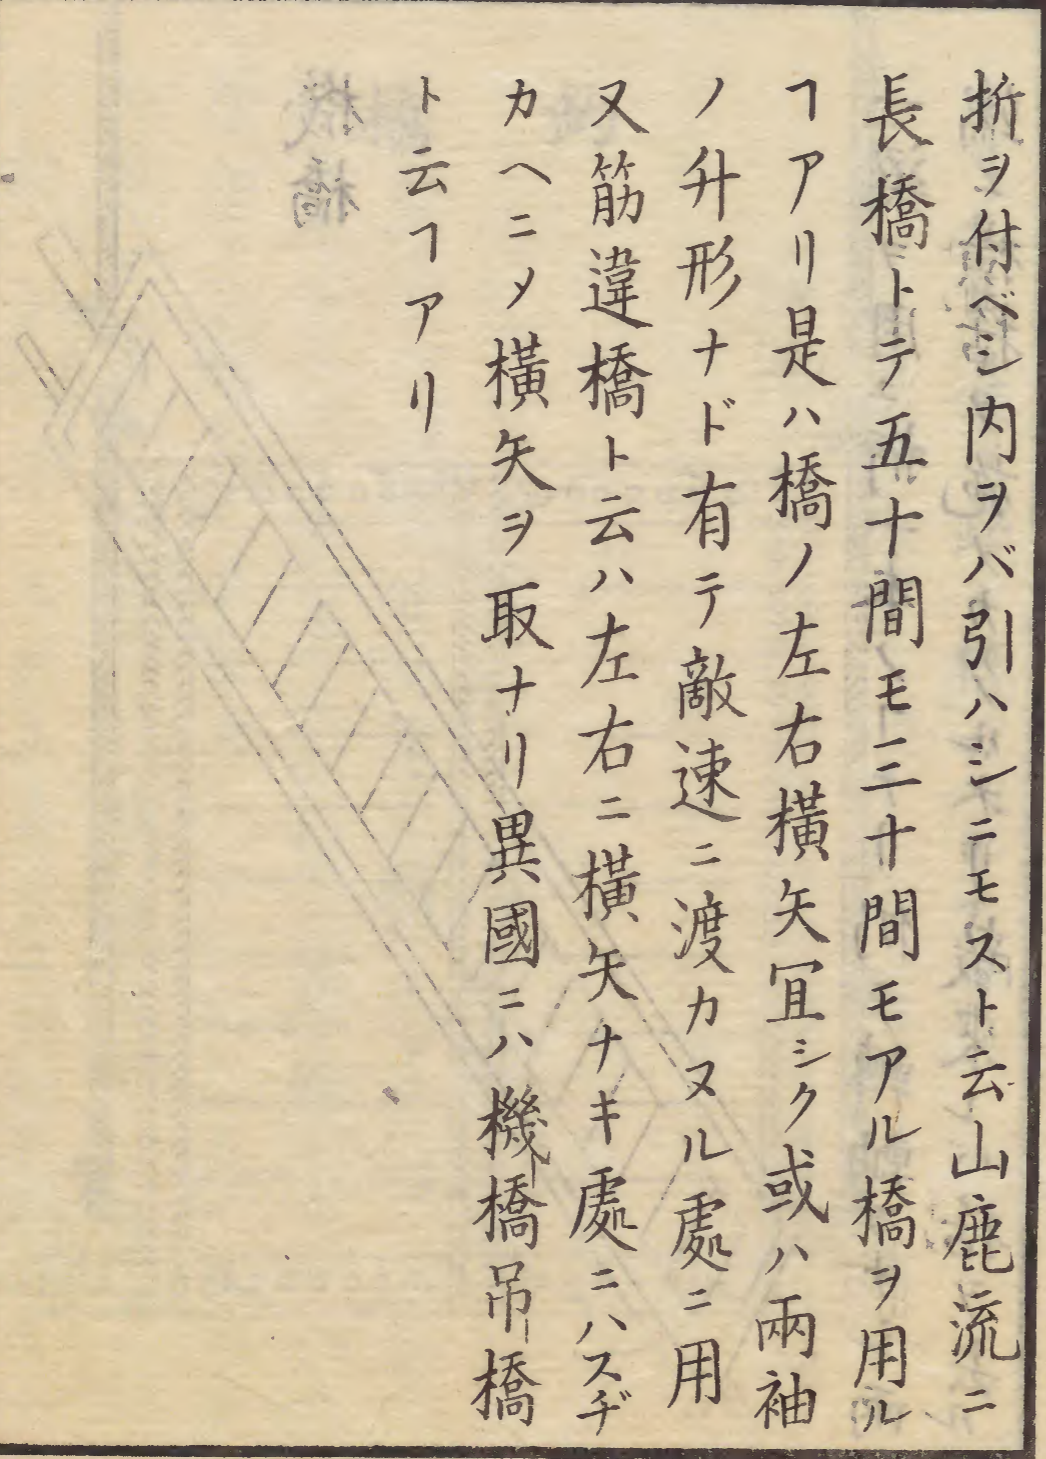 折ヲ付ベシ内ヲバ引ハシニモスト云山鹿流ニ
長橋トテ五十間モ三十間モアル橋ヲ用ル
ヿアリ是ハ橋ノ左右横矢冝シク或ハ兩袖
ノ升形ナド有テ敵速ニ渡カヌル處ニ用
又筋違橋ト云ハ左右ニ横矢ナキ處ニハスヂ
カヘニメ横矢ヲ取ナリ異國ニハ機橋吊橋
ト云ヿアリ